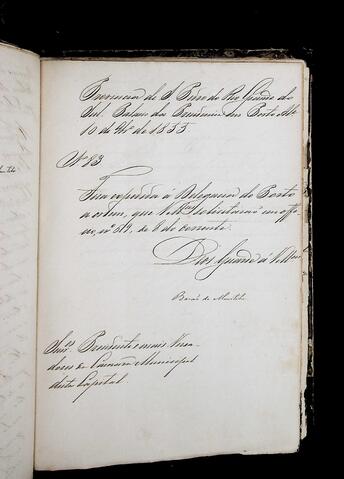 Provincia de S. Pedro do Rio Grande do
Sul. Palacio da Presidencia em Porto Alegre
10 de 7bro de 1855
Nº 93
Fica expedida á Delegacia do Porto
a ordem, que VMces solicitarão em offi-
cio, nº 59, de 6 do corrente.
Deos Guarde á VMces
Barão de Muritiba
Snres Presidente e mais Verea-
dores da Camara Municipal
desta Capital.